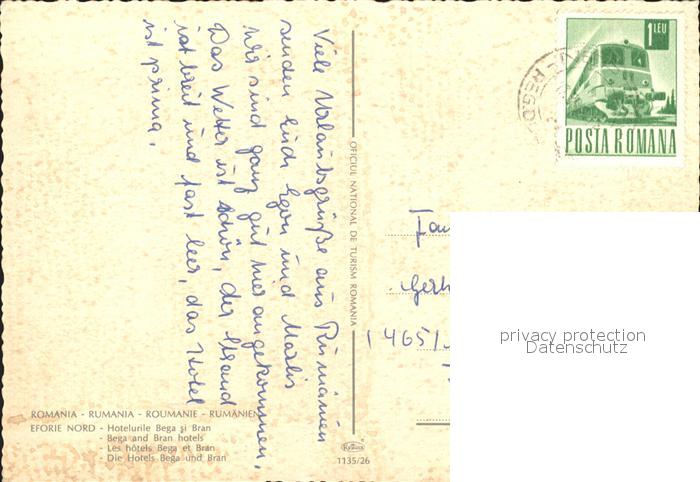 Viele Urlaubsgrüße aus Rumänien
senden Euch Egon und Marlis
Wir sind ganz gut hier angekommen,
Das Wetter ist schön, der Strand
ist breit und fast leer, das Hotel
ist prima.
OFICIUL NATIONAL DE TURISM ROMANIA
1 LEU
POSTA ROMANA
Fam
Gerh
1465/
privacy protection
Datenschutz
ROMANIA - RUMANIA - ROUMANIE - RUMÄNIEN
EFORIE NORD - Hotelurile Bega şi Bran
- Bega and Bran hotels
- Les hôtels Bega et Bran
- Die Hotels Bega und Bran
1135/26